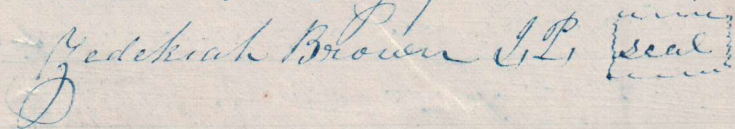 Zedekiah Brown J,P, seal